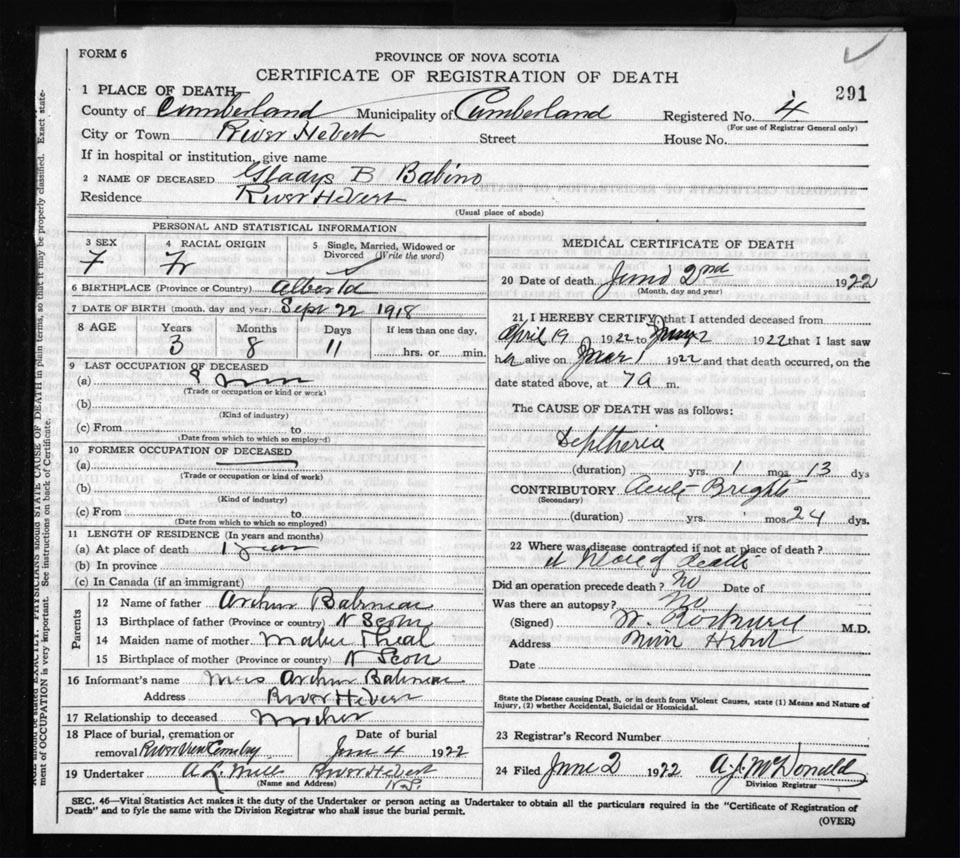 FORM 6
PROVINCE OF NOVA SCOTIA
CERTIFICATE OF REGISTRATION OF DEATH
291
1 PLACE OF DEATH
County of Cumberland Municipality of Cumberland Registered No. 4
(For use of Registrar General only)
City or Town River Hebert Street House No.
If in hospital or institution, give name
2 NAME OF DECEASED Gladys B Babino
Residence River Hebert
(Usual place of abode)
PERSONAL AND STATISTICAL INFORMATION
3 SEX 4 RACIAL ORIGIN 5 Single, Married, Widowed or
Divorced (Write the word)
F Fr
6 BIRTHPLACE (Province or Country) Alberta
7 DATE OF BIRTH (month, day and year) Sept 22 1918
8 AGE Years Months Days If less than one day,
3 8 11 hrs. or min.
9 LAST OCCUPATION OF DECEASED
(a)
(Trade or occupation or kind or work)
(b)
(Kind of industry)
(c) From to
(Date from which to which so employed)
10 FORMER OCCUPATION OF DECEASED
(a)
(Trade or occupation or kind of work)
(b)
(Kind of industry)
(c) From to
(Date from which to which so employed)
11 LENGTH OF RESIDENCE (In years and months)
(a) At place of death 1 year
(b) In province
(c) In Canada (if an immigrant)
Parents
12 Name of father Arthur Babineau
13 Birthplace of father (Province or country) N Scotia
14 Maiden name of mother Theal
15 Birthplace of mother (Province or country) N Scotia
16 Informant's name Mrs Arthur Babineau
Address River Hebert
17 Relationship to deceased Mother
18 Place of burial, cremation or Date of burial
removal River View Cemetery June 4 1922
19 Undertaker A. L. River Hebert
(Name and Address) N.S.
MEDICAL CERTIFICATE OF DEATH
20 Date of death June 2nd 1922
(Month, day and year)
21 I HEREBY CERTIFY, that I attended deceased from
April 19 1922 to June 2 1922 that I last saw
her alive on June 1 1922 and that death occurred, on the
date stated above, at 7 a m.
The CAUSE OF DEATH was as follows:
Diptheria
(duration) yrs. 1 mos. 13 dys
CONTRIBUTORY Acute Brights
(Secondary)
(duration) yrs. mos 24 dys.
22 Where was disease contracted if not at place of death?
at place of death
Did an operation precede death? No Date of
Was there an autopsy? No
(Signed) M.D.
Address River Hebert
Date
State the Disease causing Death, or in death from Violent Causes, state (1) Means and Nature of
Injury, (2) whether Accidental, Suicidal or Homicidal.
23 Registrar's Record Number
24 Filed June 2 1922 A. J. McDonald
Division Registrar
SEC. 46—Vital Statistics Act makes it the duty of the Undertaker or person acting as Undertaker to obtain all the particulars required in the "Certificate of Registration of
Death" and to fyle the same with the Division Registrar who shall issue the burial permit.
(OVER)